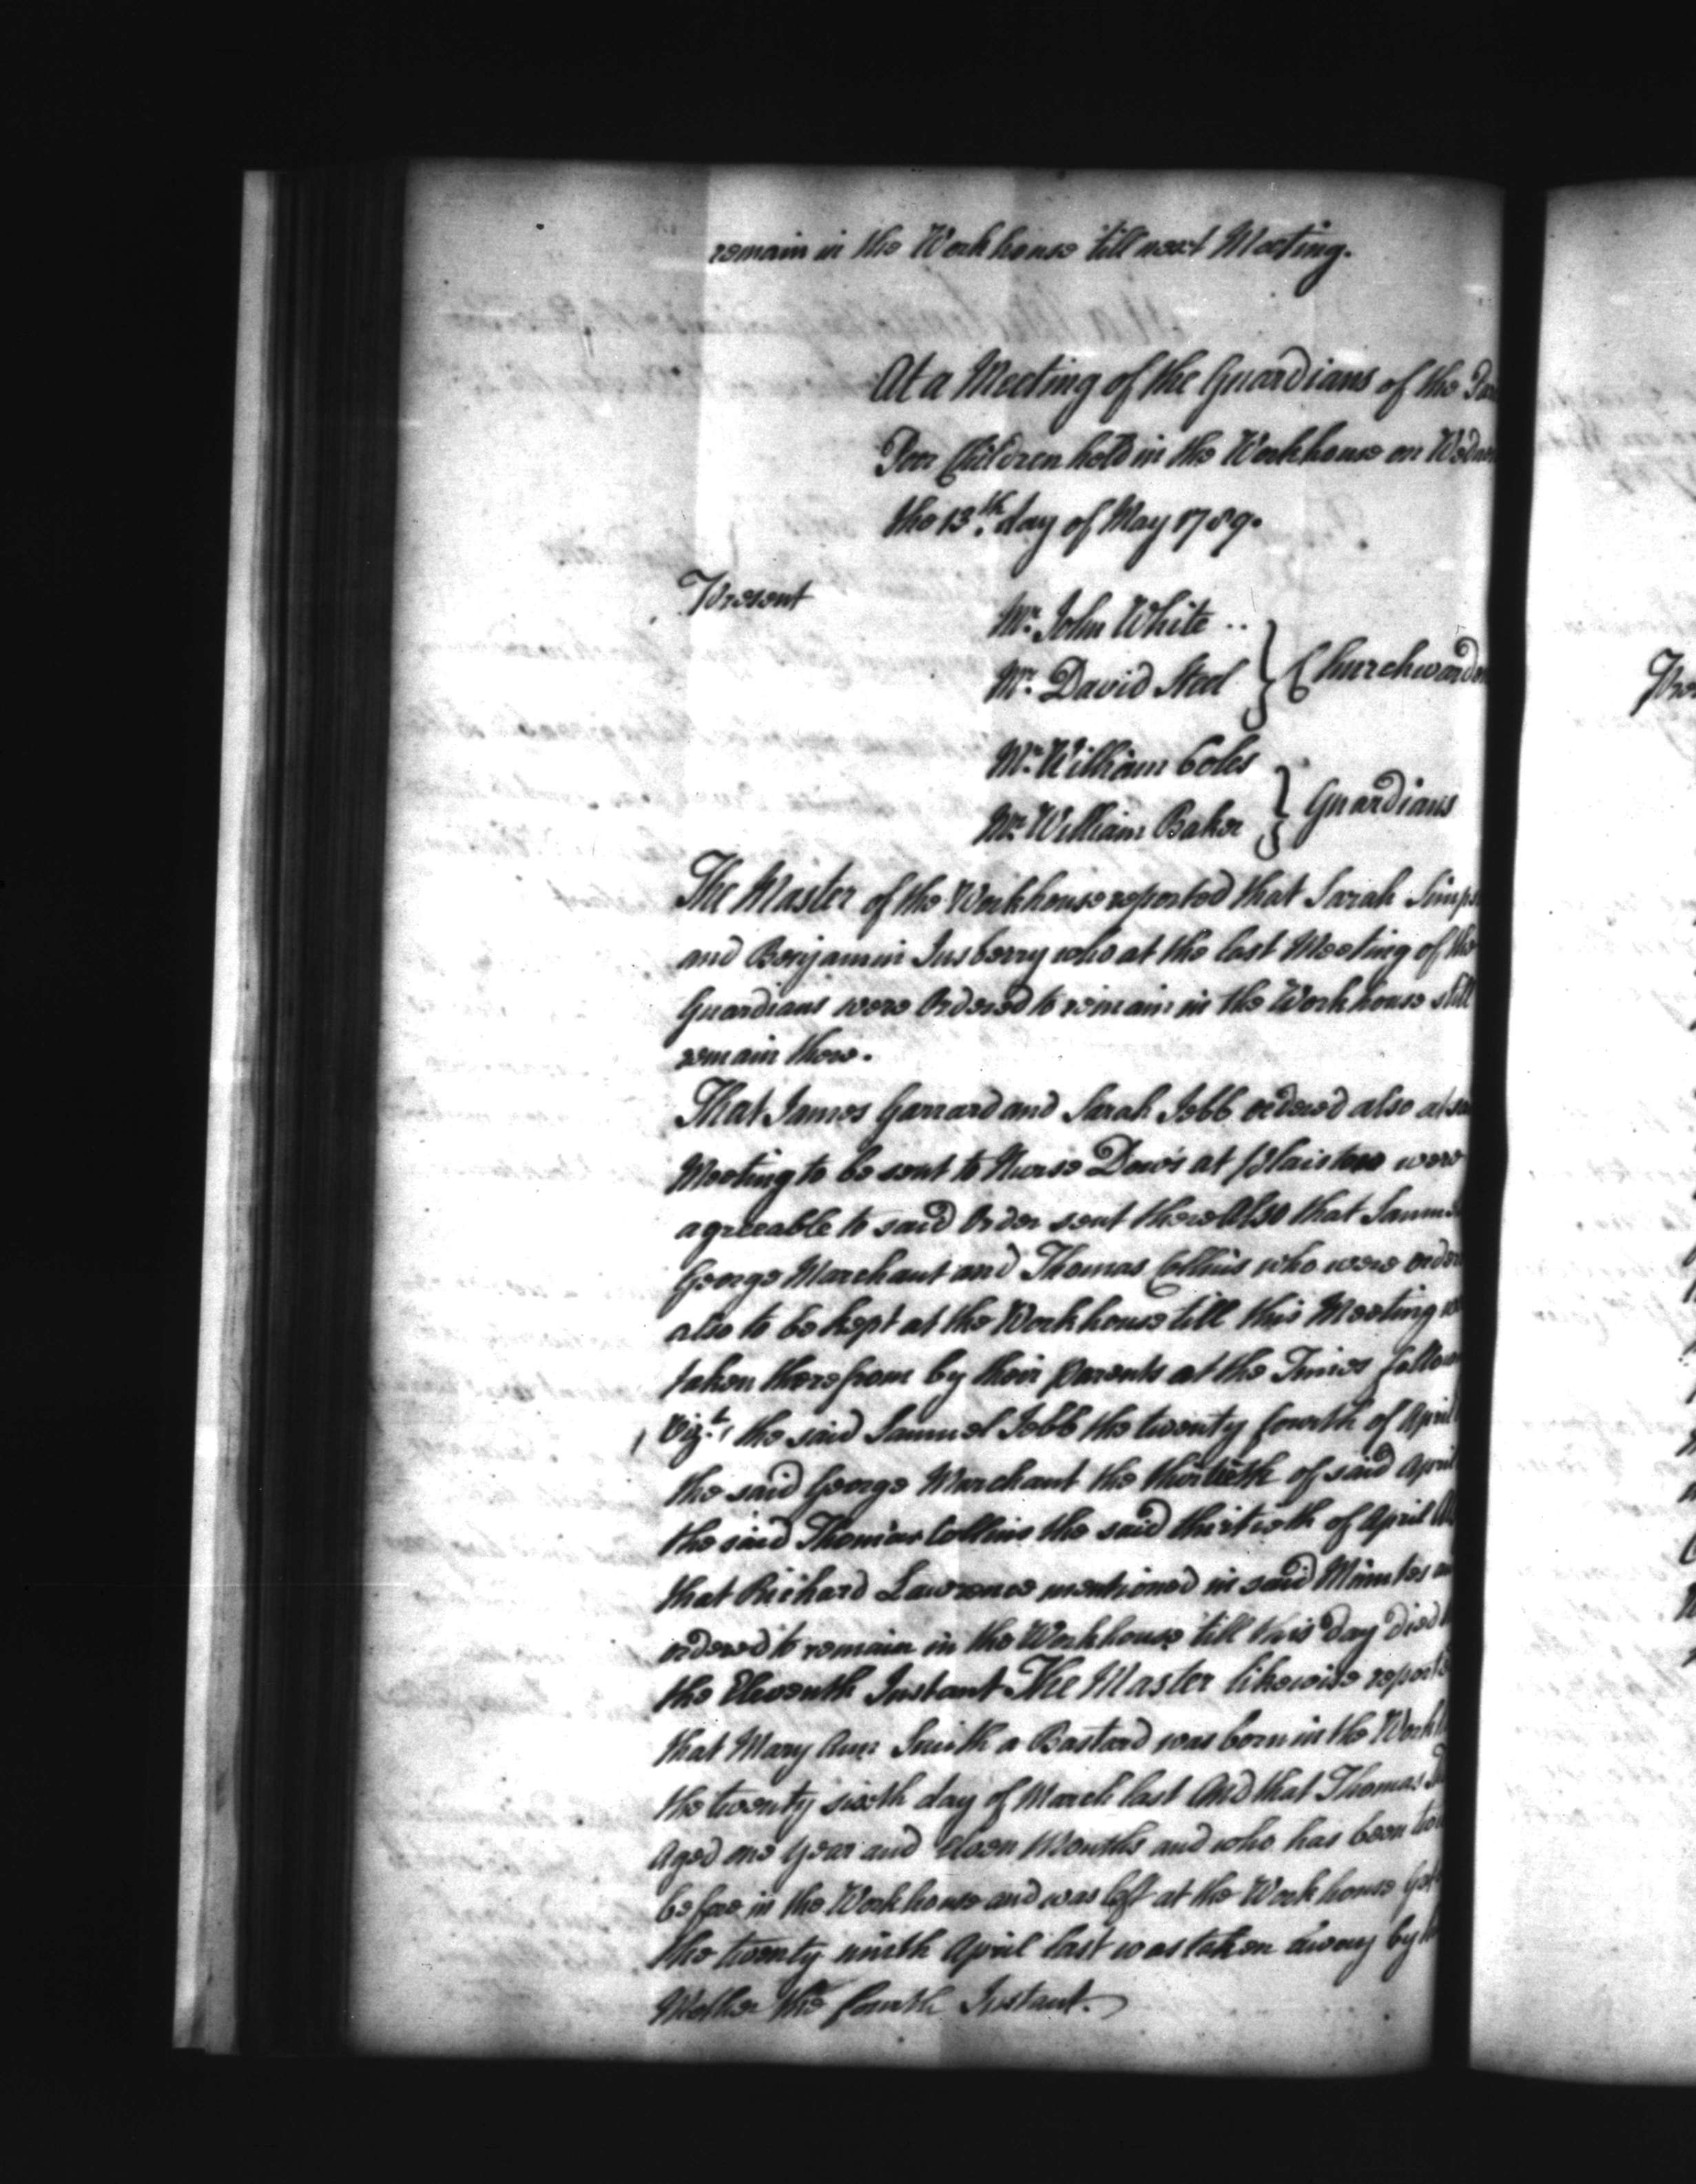 remain in the Workhouse till next Meeting.
At a Meeting of the Guardians of the
Poor Children held in the Workhouse on
the 13th. day of May 1789.
Present
Mr. John White ..
Mr. David Steel } Churchwarden
Mr. William Coles
Mr. William Baker } Guardians
The Master of the Workhouse reported that Sarah
and Benjamin Insberry who at the last Meeting of the
Guardians were Ordered to remain in the Workhouse still
remain there.
That James Garrard and Sarah Jebb ordered also at
Meeting to be sent to Nurse Dow's at Plaistow were
agreeable to said Order sent there Also that
George Marchant and Thomas Collins who were
also to be kept at the Workhouse till this Meeting
taken therefrom by their Parents at the Times
Vizt. the said Samuel Jebb the twenty fourth of April
the said George Marchant the thirtieth of said April
the said Thomas Collins the said thirtieth of April
that Richard Lawrence mentioned in said Minutes
ordered to remain in the Workhouse till this day died
the Eleventh Instant The Master likewise
that Mary Ann Smith a Bastard was born in the
the twenty sixth day of March last And that Thomas
Aged one Year and eleven Months and who has been
before in the Workhouse and was left at the Workhouse
the twenty ninth April last was taken away by
Mother the fourth Instant.